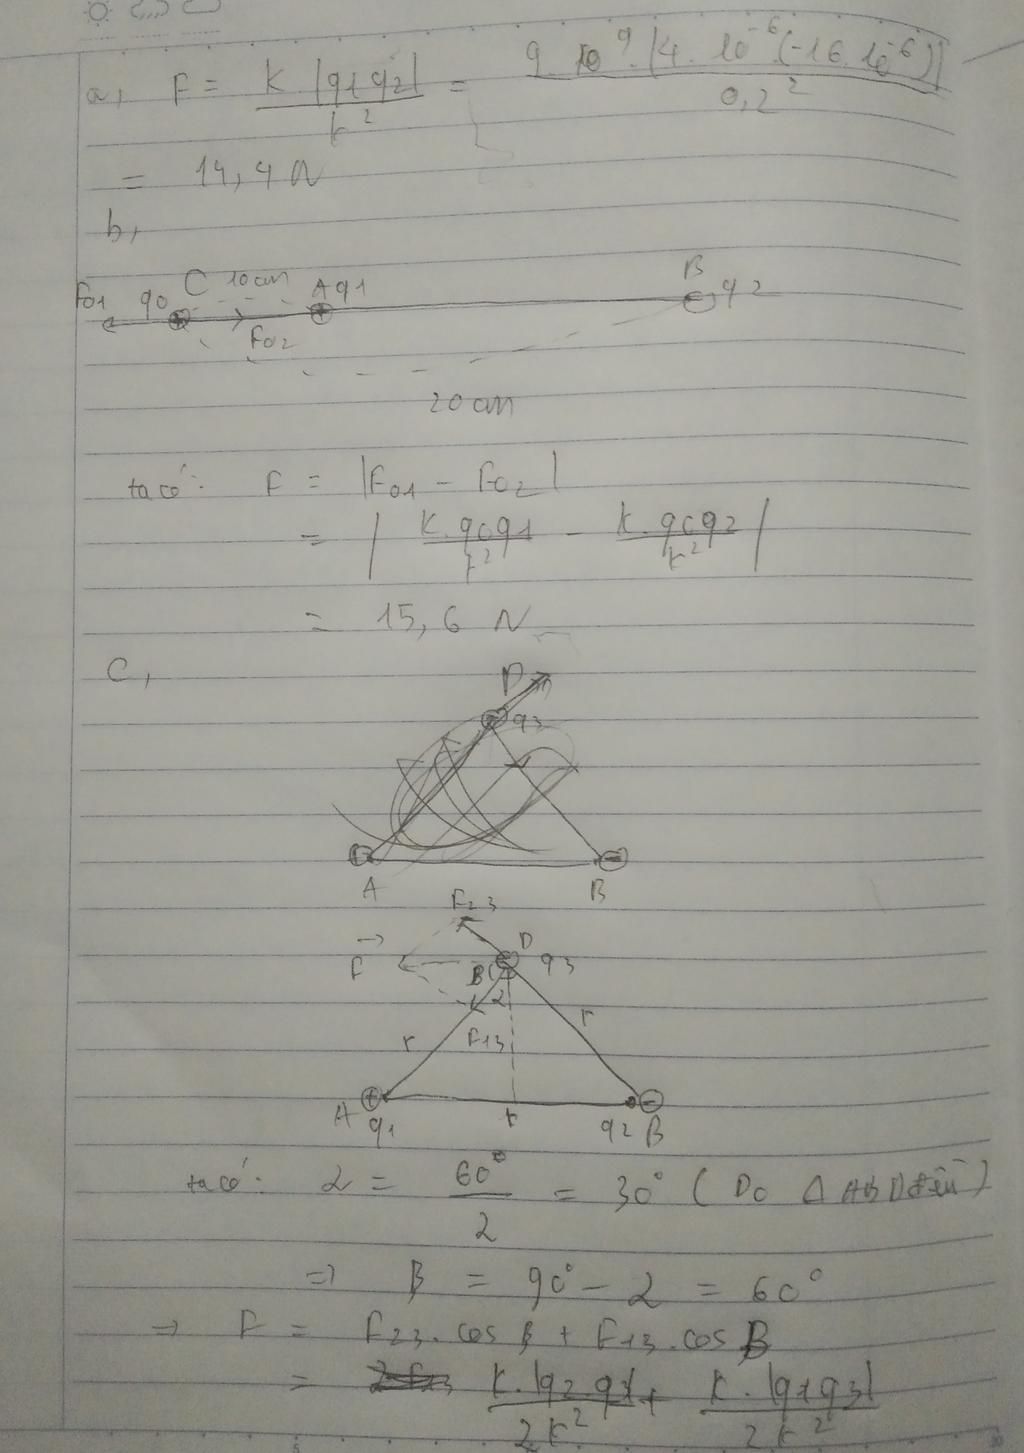 a, F = K.|q1q2| / r² = 9.10⁹.|4.10⁻⁶.(-16.10⁻⁶)| / 0,2²
= 14,4 N
b,
C 10cm
B
F01 q0 A q1 q2
F02
20 cm
ta có: F = |F01 - F02|
= | K.q0q1 / r² - K.q0q2 / r² |
= 15,6 N
C,
D
q3
A B
F23
D
F β q3
α
r F13 r
A B
q1 r q2
ta có: α = 60° / 2 = 30° (Do Δ ABD đều)
=> β = 90° - α = 60°
=> F = F23.cos β + F13.cos β
= K.|q2.q3| / 2r² + K.|q1q3| / 2r²